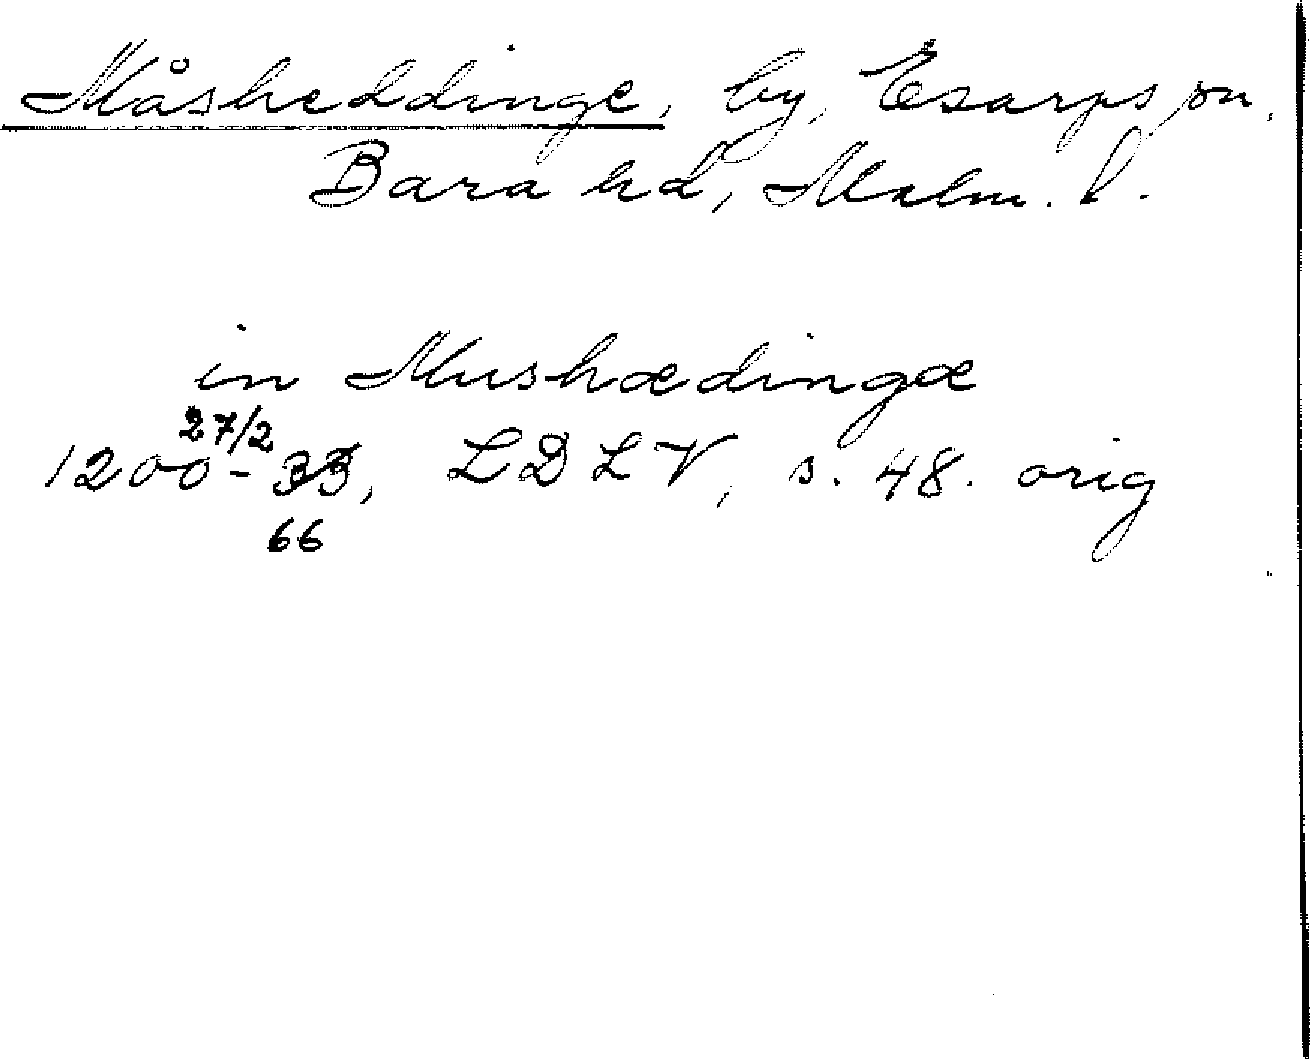 Måsheddinge, by, Esarps sn,
Bara hd, Malm. l.
in Mushædingæ
27/2
1200-33, LDLV, s. 48. orig
66